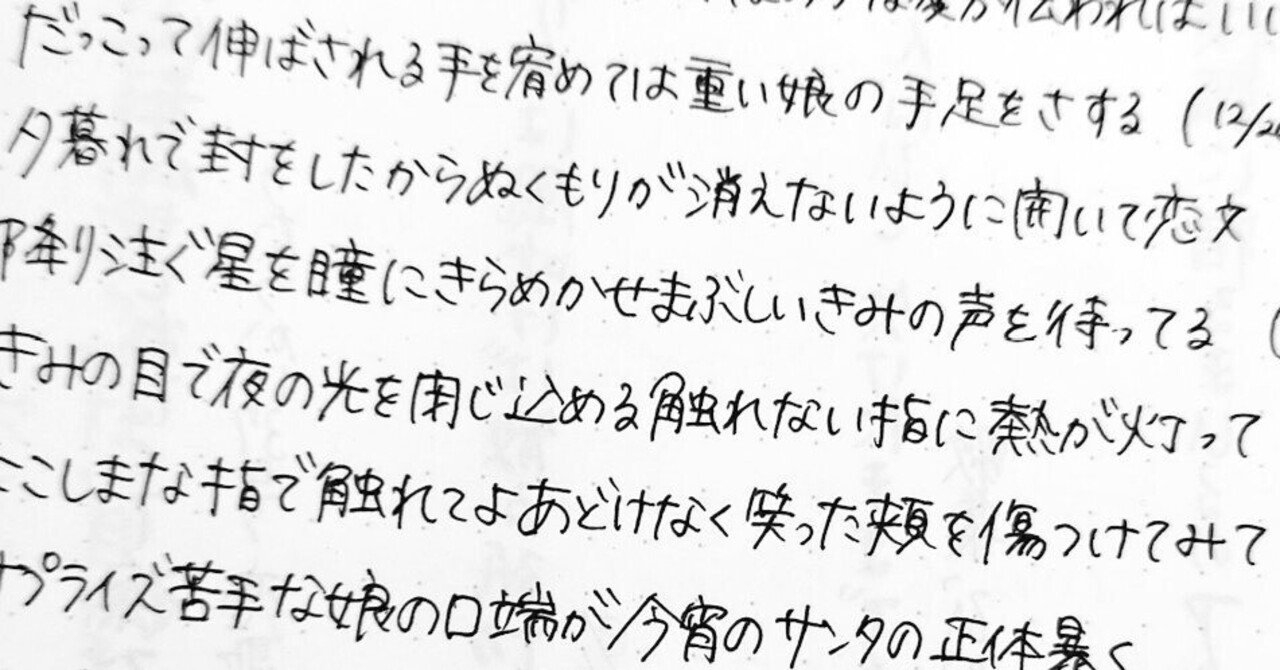 伝わればいい
だっこって伸ばされる手を宥めては重い娘の手足をさする (12/2
夕暮れで封をしたからぬくもりが消えないように開いて恋文
降り注ぐ星を瞳にきらめかせまぶしいきみの声を待ってる (
きみの目で夜の光を閉じ込める触れない指に熱が灯って
こしまな指で触れてよあどけなく笑った頬を傷つけてみて
プライズ苦手な娘の口端が今宵のサンタの正体暴く